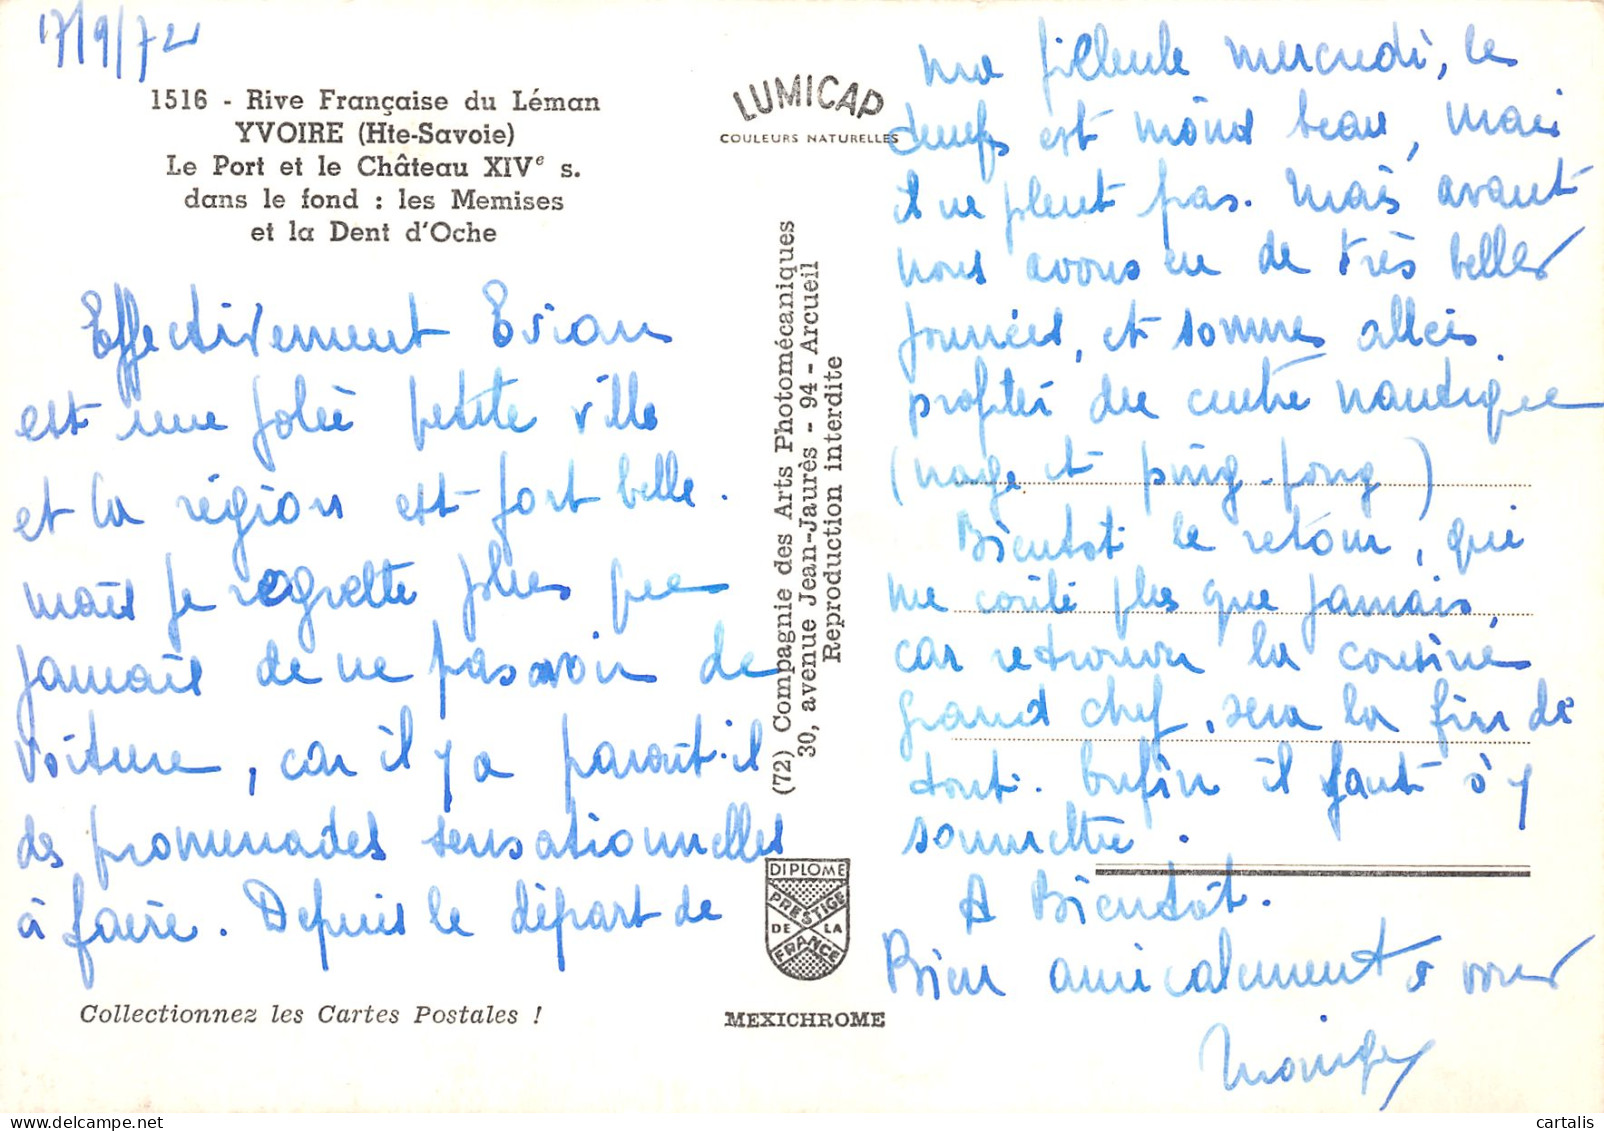 17/9/72
1516 - Rive Française du Léman
YVOIRE (Hte-Savoie)
Le Port et le Château XIVe s.
dans le fond : les Memises
et la Dent d'Oche
Effectivement Evian
est une jolie petite ville
et la région est fort belle.
mais je regrette plus que
jamais de ne pas avoir de
voiture, car il y a parait-il
des promenades sensationnelles
à faire. Depuis le départ de
Collectionnez les Cartes Postales !
LUMICAP
COULEURS NATURELLES
(72) Compagnie des Arts Photomécaniques
30, avenue Jean-Jaurès - 94 - Arcueil
Reproduction interdite
DIPLOME
PRESTIGE
DE LA
FRANCE
MEXICHROME
ma filleule mercredi, le
temps est moins beau, mais
il ne pleut pas. Mais avant
nous avons eu de très belles
journées, et sommes allées
profiter du centre nautique
(nage et ping-pong)
Bientôt le retour, qui
me coûte plus que jamais,
car retrouver la cousine
grand chef, sera la fin de
tout. Enfin il faut s'y
soumettre.
A Bientôt.
Bien amicalement à vous
cartalis